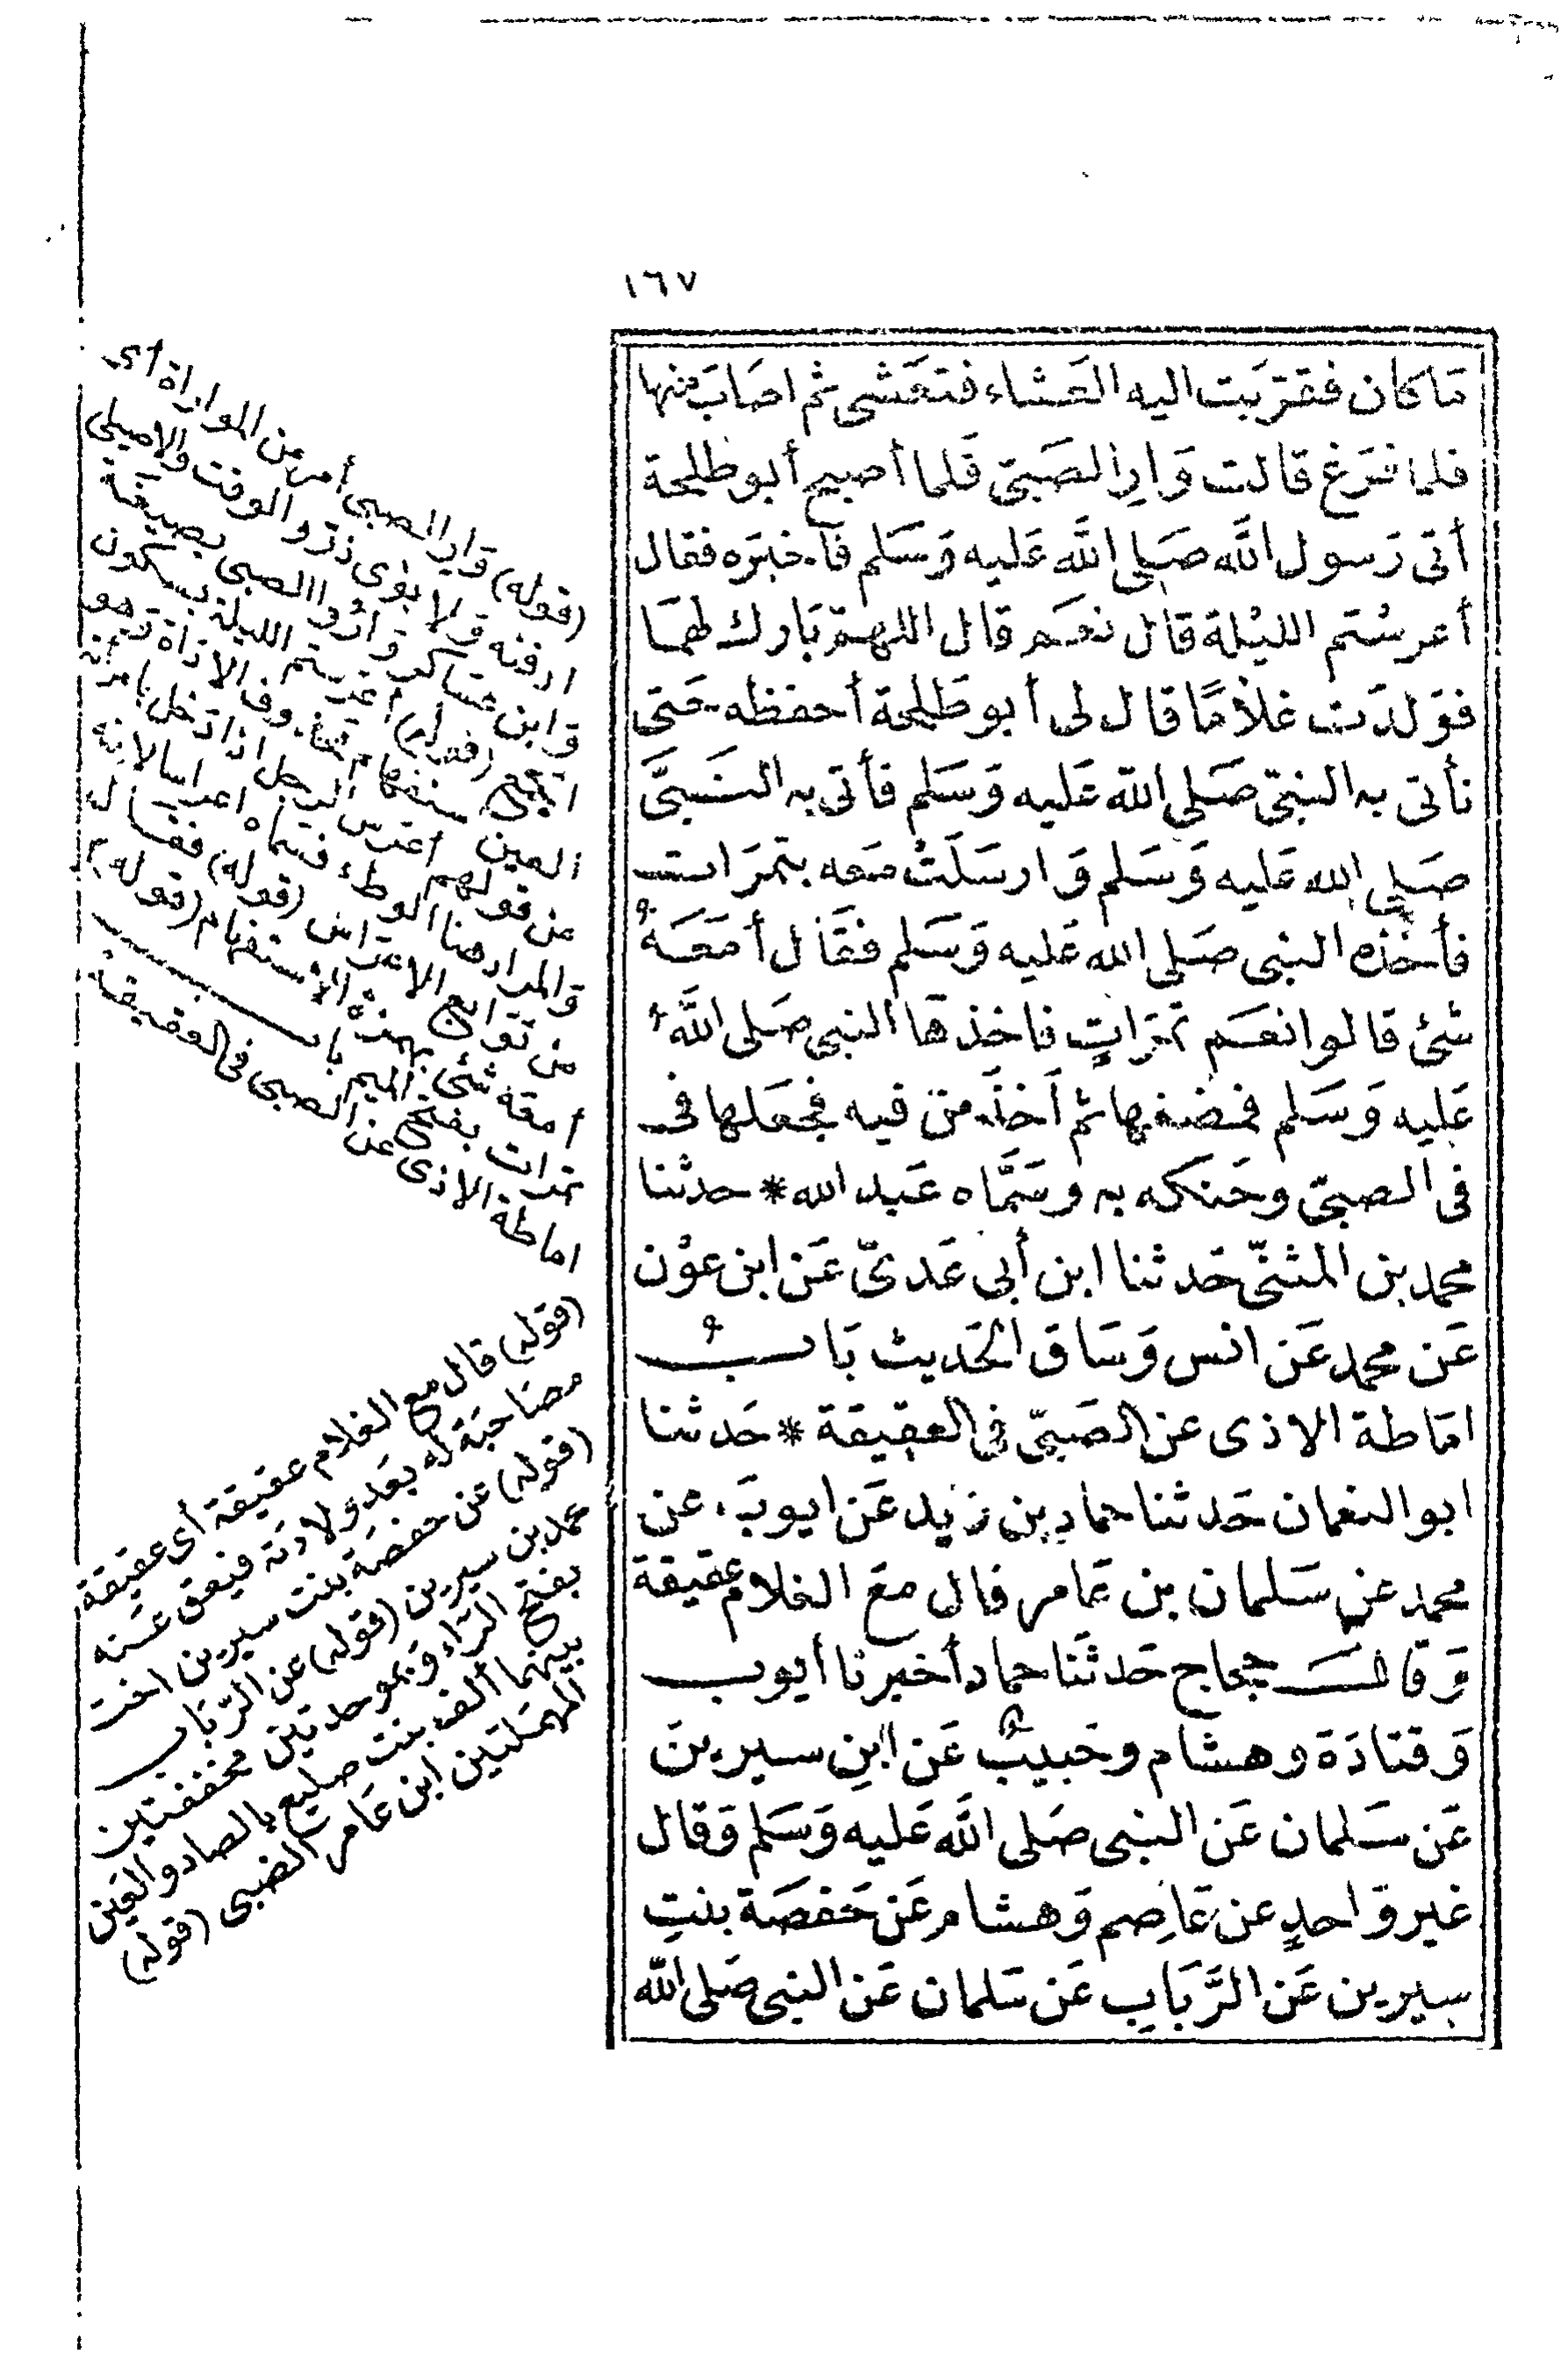 ١٦٧
مَا كان فقرّبَت اليه العَشاء فتعَشى ثم اصَابَ منها
فلما فرَغ قالت وَارِ الصَبىّ فَلما أصبح أبو طلحة
أتى رَسول اللَّه صَلى اللَّه عَليه وَسَلم فأخبَره فقال
أعرسْتم الليْلة قال نعَم قال اللهمّ بَارك لهمَا
فوَلدَت غلامًا قال لى أبو طَلحة أحفظه حَتى
نأتى به النبىّ صَلى اللّه عَليه وَسَلم فأتى به النَبىَّ
صَلى الله عَليه وَسَلم وَارسَلَتْ مَعه بتمرَات
فأخذه النبى صَلى الله عَليه وَسَلم فقَال أمَعَهُ
شئ قالوا نعَم تمَرَاتٍ فاخذهَا النبى صَلى اللَّه
عَليه وَسَلم فمضغها ثم أخذَ من فيه فجعَلها فى
فى الصبىّ وحَنكه به وسَمَّاه عَبد الله * حدثنا
محمد بن المثنّى حَدثنا ابن أبى عَدىّ عَن ابن عوْن
عَن محمد عَن انس وَسَاق الحَديث بَابُ
امَاطة الاذى عن الصَبىّ فى العقِيقة * حَدثنا
ابو النعمان حَدثنا حماد بن زَيد عَن ايوبَ عن
محمد عن سَلمان بن عَامر قال مَعَ الغلام عقيقة
وَقالَ حجاج حَدثَنا حماد أخبرنا أيوب
وَقتادَة وهشام وحَبيبٌ عَن ابنِ سيرينَ
عَن سَلمان عَن النبى صَلى اللَّه عَليه وَسَلم وَقال
غير وَاحدٍ عن عَاصِم وَهشام عَن حَفصَة بنتِ
سيرين عَن الرَّبَابِ عَن سَلمان عَن النبى صَلى اللّه
(قوله) وَارِ الصبى أمر من المواراة أى
ادفنه وَلابوى ذرّ والوقت والاصيلى
وَابن عساكر وَارُوا الصبى بصيغة
الجمع (قوله) أعرستم الليلة بسكون
العين
من قولهم أعرَس الرجل اذا دَخل بامرأته
وَالمراد هنا الوطء فسماه اعراسا لانه
من توَابع الاعرَاس (قوله) فقال
أمعَه شئ بهمزة الاستفهام (قوله)
تمرات بفتح الميم بابـ
اماطة الاذى عن الصبى فى العقيقة
(قوله) قال مع الغلام عقيقة أى عقيقة
مصَاحبَة له بعَد ولادته فيعق عَنه
(قوله) عن حفصَة بنت سيرين اخت
محمد بن سيرين (قوله) عن الرّبَاب
بفتح الرّاء وَبموحدتين مخففتين
بينهما ألف بنت صليع بالصاد والعَين
المهمَلتَين ابن عَامر الضبى (قوله)